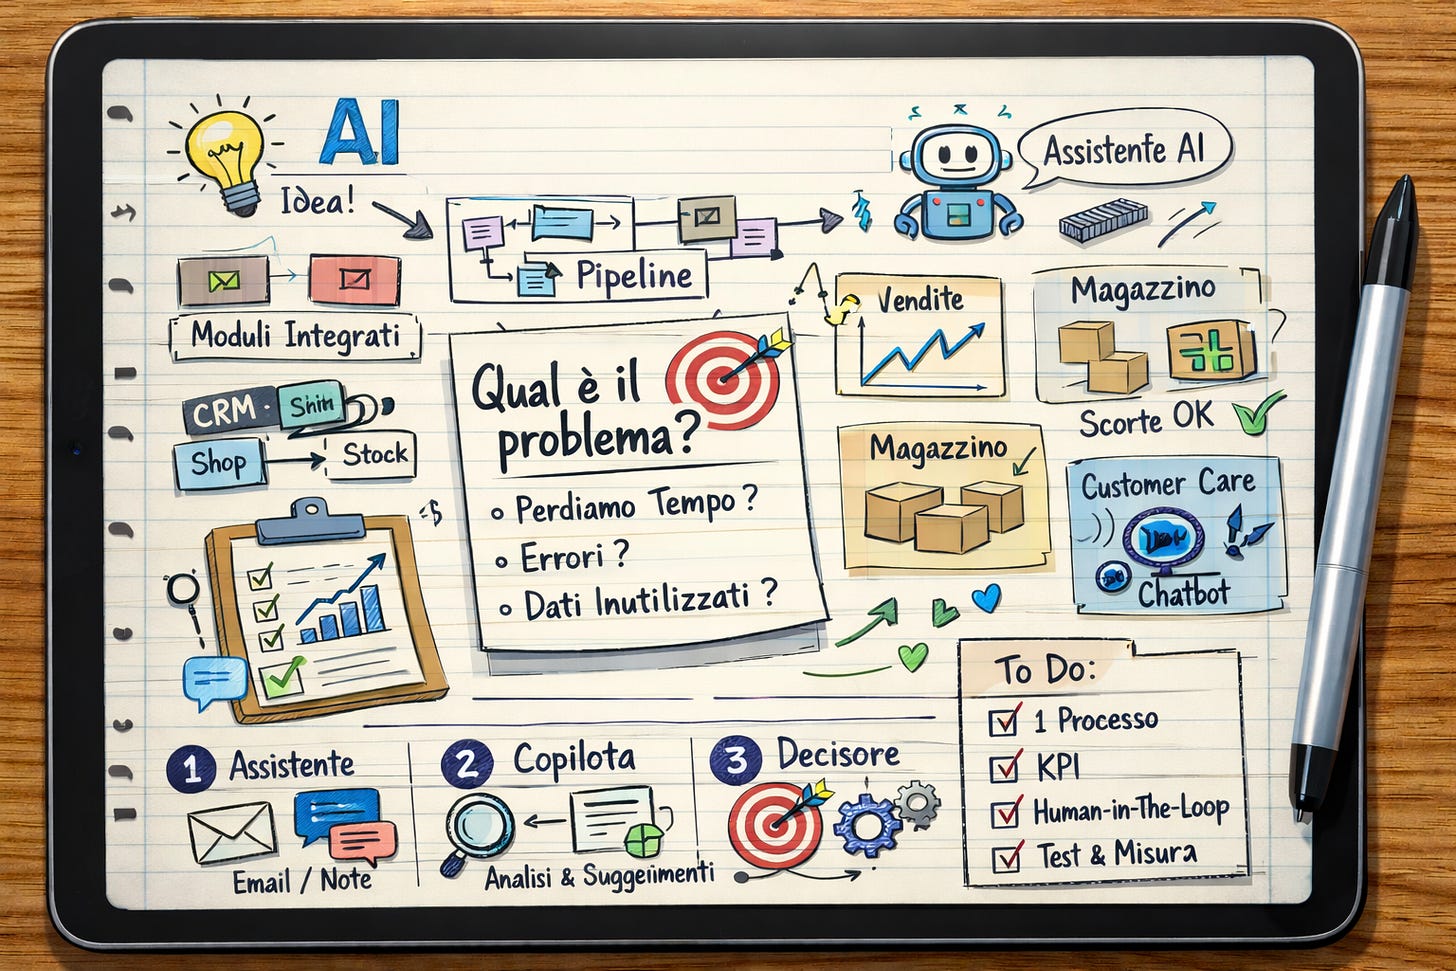 AI
Idea!
Assistente AI
Pipeline
Moduli Integrati
Vendite
Magazzino
Qual è il
problema?
Perdiamo Tempo?
Errori?
Dati Inutilizzati?
CRM
Shop
Stock
Scorte OK
Magazzino
Customer Care
Chatbot
To Do:
1 Processo
KPI
Human-in-The-Loop
Test & Misura
1 Assistente
Email / Note
2 Copilota
Analisi & Suggeiimenti
3 Decisore